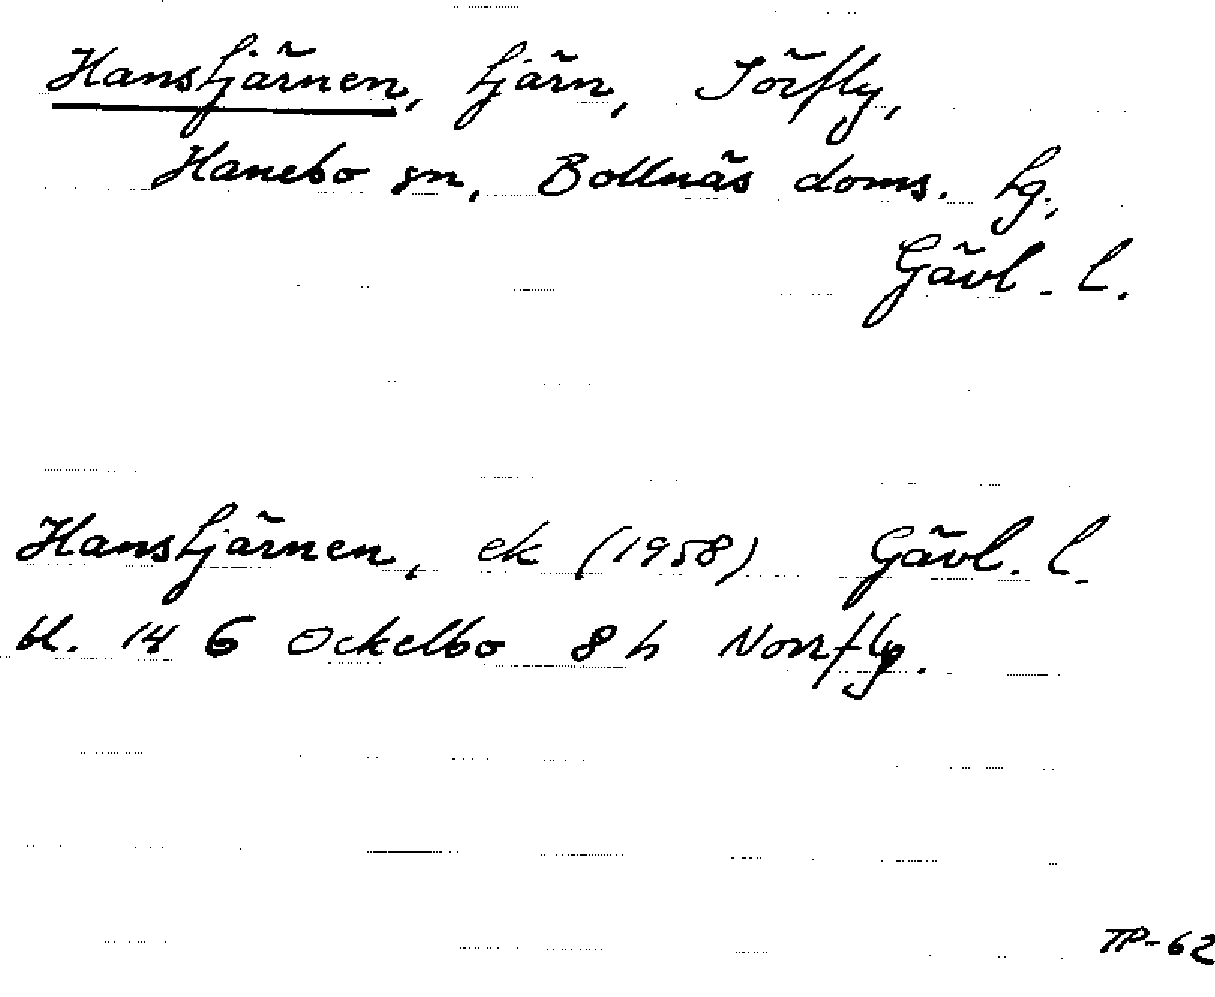 Hanstjärnen, tjärn, Sörfly,
Hanebo sn, Bollnäs doms. tg.,
Gävl. l.
Hanstjärnen, ek (1958) Gävl. l.
bl. 14 G Ockelbo 8 h Norrfly.
TP-62